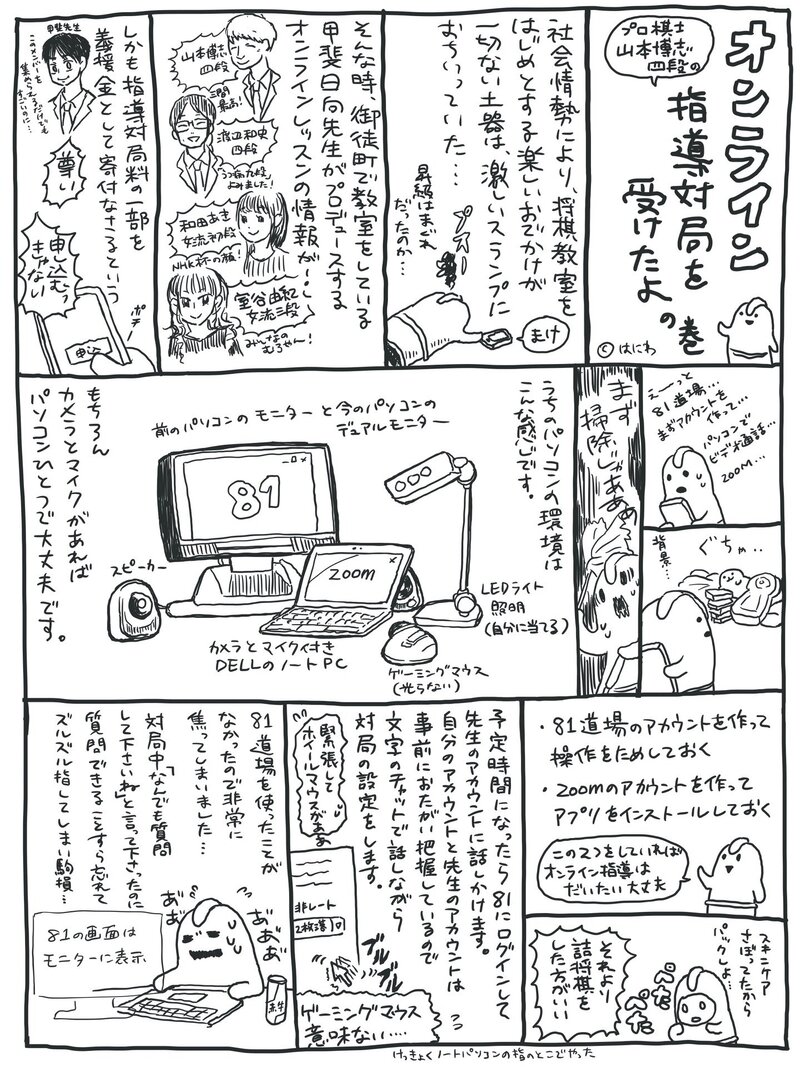 オンライン
指導対局を
受けたよ
の巻
プロ棋士
山本博志
四段の
©はにわ
社会情勢により、将棋教室を
はじめとする楽しいおでかけが
一切ない土器は、激しいスランプに
おちいっていた…
昇級はまぐれ
だったのか…
プスー
まけ
そんな時、御徒町で教室をしている
甲斐日向先生がプロデュースする
オンラインレッスンの情報が!!
山本博志
四段
三間
最高!
渡辺和史
四段
うつ病九段
よみました!
和田あき
女流初段
NHK杯の顔!
室谷由紀
女流三段
みんなの
むろやん!
甲斐先生
このメンバーを
集められてるだけでも
すごいのに…
しかも指導対局料の一部を
義援金として寄付なさるという
尊い
申し込むっ
きゃない
ポチ
申込
えーっと
81道場…
まずアカウントを
作って…
パソコンで
ビデオ通話…
ZOOM…
ぐちゃ..
背景…
まず
掃除じゃあああ
うちのパソコンの環境は
こんな感じです。
前のパソコンのモニターと今のパソコンの
デュアルモニター
81
ZOOM
スピーカー
LEDライト
照明
(自分に当てる)
カメラとマイク付き
DELLのノートPC
ゲーミングマウス
(光らない)
もちろん
カメラとマイクがあれば
パソコンひとつで大丈夫です。
・81道場のアカウントを作って
操作をためしておく
・ZOOMのアカウントを作って
アプリをインストールしておく
この2つをしていれば
オンライン指導は
だいたい大丈夫
スキンケア
さぼってたから
パックしよ…
ぺた
ぺた
それより
詰将棋を
した方がいい
予定時間になったら81にログインして
先生のアカウントに話しかけます。
自分のアカウントと先生のアカウントは
事前におたがい把握しているので
文字のチャットで話しながら
対局の設定をします。
緊張して
ホイールマウスがああ
非レート
2枚落ち
ブルブル
ゲーミングマウス
意味ない….
81道場を使ったことが
なかったので非常に
焦ってしまいました…
対局中「なんでも質問
して下さいね」と言って下さったのに
質問できることすら忘れて
ズルズル指してしまい駒損…
あ゛あ゛
あ゛あ゛あ゛
81の画面は
モニターに表示
赤牛
けっきょくノートパソコンの指のとこでやった